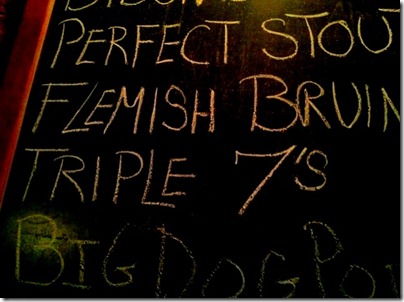 PERFECT STOUT
FLEMISH BRUIN
TRIPLE 7'S
BIG DOG PO